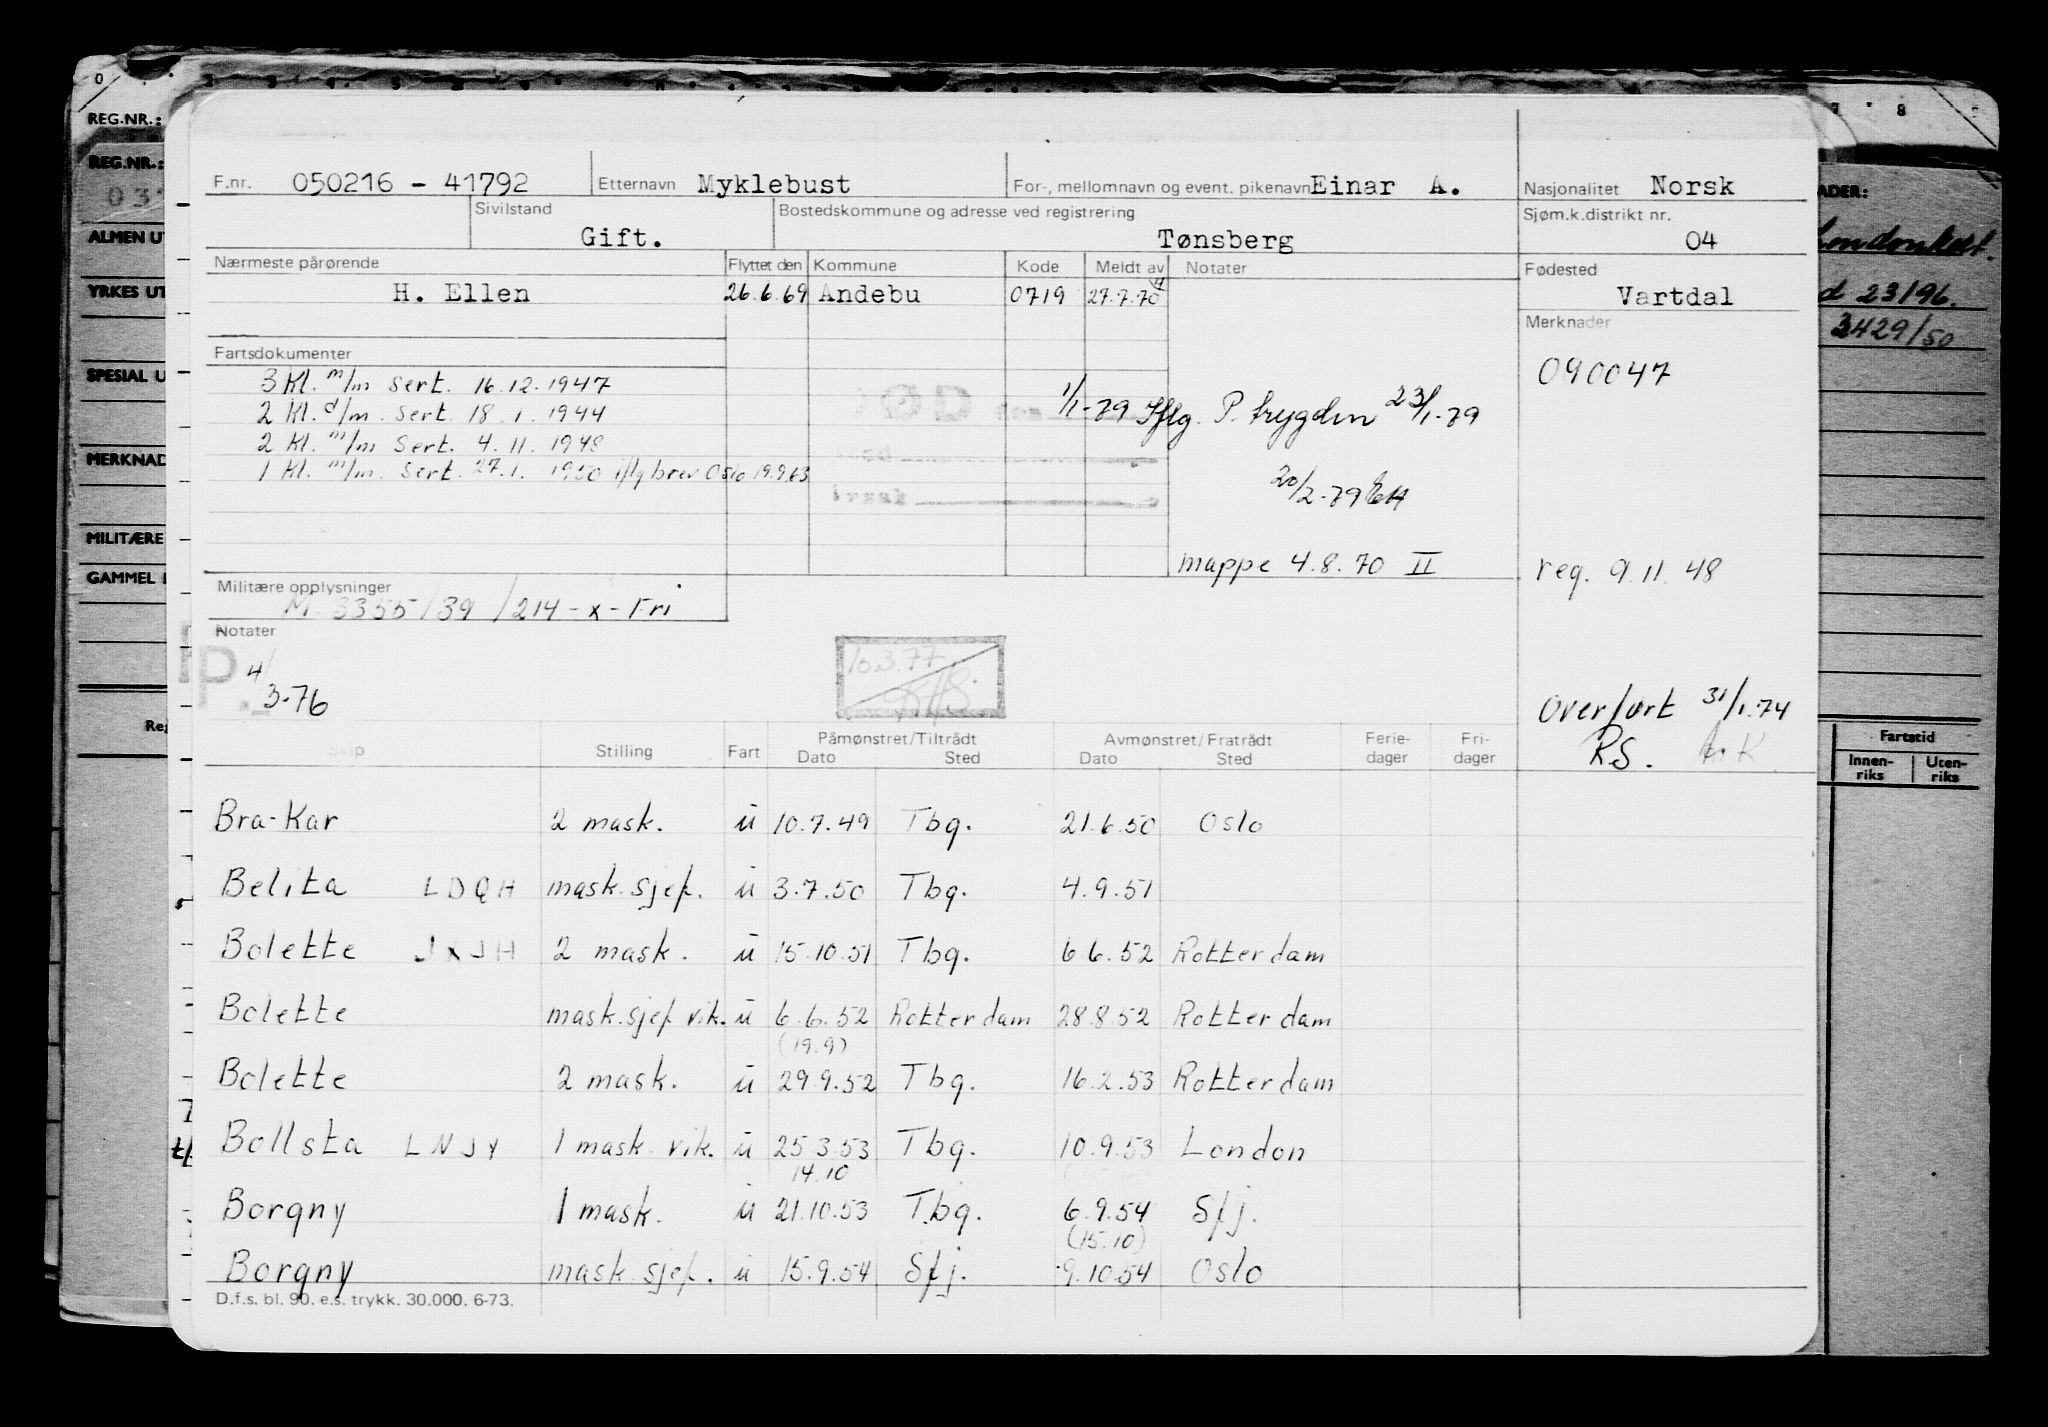 REG.NR.:
REG.NR.:
ALMEN UT
YRKES UT
SPESIAL U
MERKNAD
MILITÆRE
GAMMEL
F.nr. 050216 - 41792 Etternavn Myklebust For-, mellomnavn og event. pikenavn Einar A. Nasjonalitet Norsk
Sivilstand Gift. Bostedskommune og adresse ved registrering Tønsberg Sjøm.k.distrikt nr. 04
Nærmeste pårørende Flyttet den Kommune Kode Meldt av Notater Fødested
H. Ellen 26.6.69 Andebu 0719 27.7.70 Vartdal
Merknader
090047
Fartsdokumenter
3 Kl. m/m sert. 16.12.1947
2 Kl. d/m. sert. 18.1.1944
2 Kl. m/m sert. 4.11.1948
1 Kl. m/m. sert. 27.1.1950 iflg brev Oslo 19.9.63
1/1-79 Iflg. P. trygden 23/1-79
20/2-79
mappe 4.8.70 II
reg. 9.11.48
Militære opplysninger
M. 3355/39/214-x-Fri
Notater
4/3-76
10.3.77
Overført 31/1.74
RS.
Skip Stilling Fart Påmønstret/Tiltrådt Dato Sted Avmønstret/Fratrådt Dato Sted Ferie-dager Fri-dager
Bra-Kar 2 mask. u 10.7.49 Tbg. 21.6.50 Oslo
Belita LDQH mask.sjef. u 3.7.50 Tbg. 4.9.51
Bolette JXJH 2 mask. u 15.10.51 Tbg. 6.6.52 Rotterdam
Bolette mask.sjef vik. u 6.6.52 Rotterdam 28.8.52 Rotterdam
(19.9)
Bolette 2 mask. u 29.9.52 Tbg. 16.2.53 Rotterdam
Bollsta LNJY 1 mask vik. u 25.3.53 Tbg. 10.9.53 London
14.10
Borgny 1 mask. u 21.10.53 Tbg. 6.9.54 Sfj.
(15.10)
Borgny mask sjef. u 15.9.54 Sfj. 9.10.54 Oslo
D.f.s. bl. 90. e.s. trykk. 30.000. 6-73.
ADER:
d 23/96.
3429/50
Fartstid
Innen-riks Uten-riks